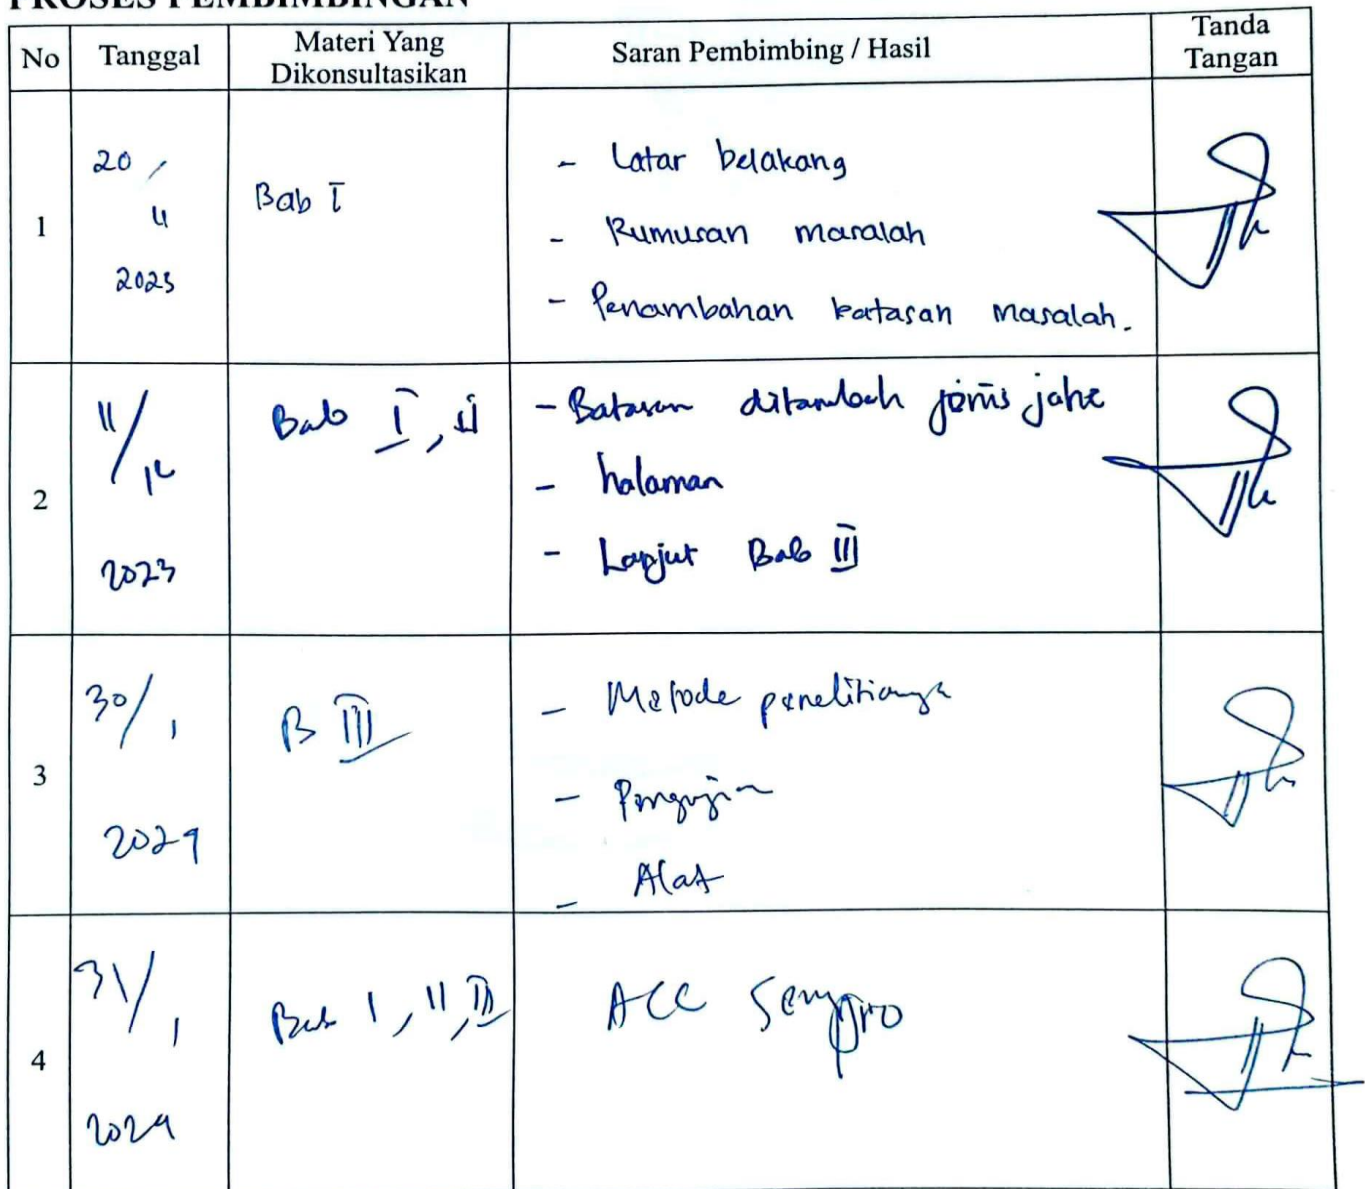 PROSES PEMBIMBINGAN
No Tanggal Materi Yang Dikonsultasikan Saran Pembimbing / Hasil Tanda Tangan
1
20 / 11 2023
Bab I
- Latar belakang
- Rumusan masalah
- Penambahan batasan masalah.
2
11/12 2023
Bab I, II
- Batasan ditambah jenis jahe
- halaman
- Lanjut Bab III
3
30/1 2024
B III
- Metode penelitiannya
- Pengujian
- Alat
4
31/1 2024
Bab I, II, III
ACC Sempro